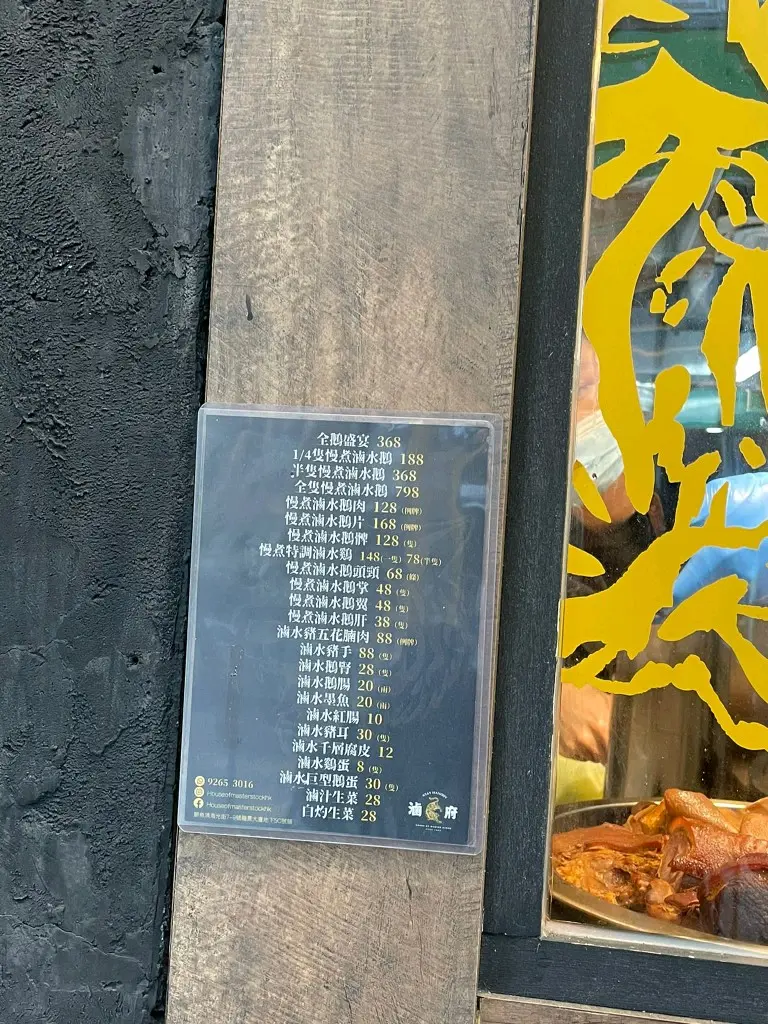 全鵝盛宴 368
1/4隻慢煮滷水鵝 188
半隻慢煮滷水鵝 368
全隻慢煮滷水鵝 798
慢煮滷水鵝肉 128 (例牌)
慢煮滷水鵝片 168 (例牌)
慢煮滷水鵝髀 128 (隻)
慢煮特調滷水鷄 148(一隻) 78(半隻)
慢煮滷水鵝頭頸 68 (條)
慢煮滷水鵝掌 48 (隻)
慢煮滷水鵝翼 48 (隻)
慢煮滷水鵝肝 38 (隻)
滷水豬五花腩肉 88 (例牌)
滷水豬手 88 (隻)
滷水鵝腎 28 (隻)
滷水鵝腸 20 (両)
滷水墨魚 20 (両)
滷水紅腸 10
滷水豬耳 30 (隻)
滷水千層腐皮 12
滷水鷄蛋 8 (隻)
滷水巨型鵝蛋 30 (隻)
滷汁生菜 28
白灼生菜 28
9265 3016
Houseofmasterstockhk
Houseofmasterstockhk
滷府